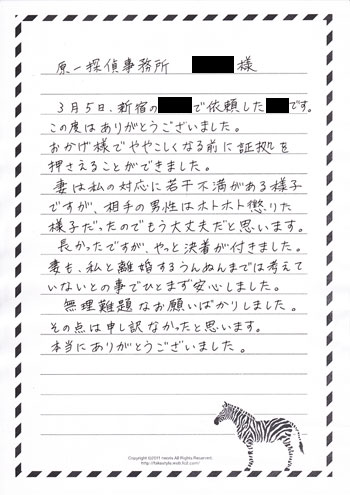 原一探偵事務所 様
3月5日、新宿の で依頼した です。
この度はありがとうございました。
おかげ様でややこしくなる前に証拠を
押さえることができました。
妻は私の対応に若干不満がある様子
ですが、相手の男性はホトホト懲りた
様子だったのでもう大丈夫だと思います。
長かったですが、やっと決着が付きました。
妻も、私と離婚するうんぬんまでは考えて
いないとの事でひとまず安心しました。
無理難題なお願いばかりしました。
その点は申し訳なかったと思います。
本当にありがとうございました。